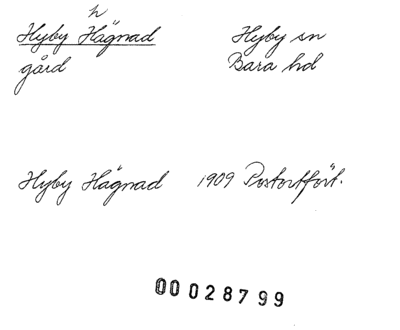 h
Hyby Hägnad Hyby sn
gård Bara hd
Hyby Hägnad 1909 Postortfört.
00028799